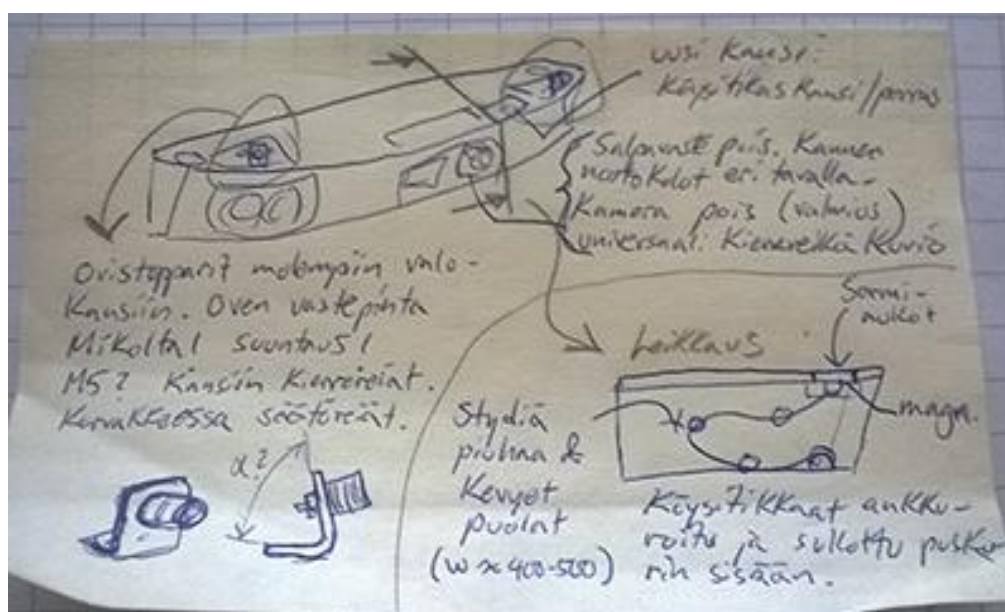 uusi kansi:
Köysitikas kansi/porras
Salpavaste pois. Kannen
nostokolot eri tavalla.
Kamera pois (valmius)
universaali kierereikä kuvio
Ovistopparit molempiin valo-
kansiin. Oven vastepinta
Mikolta! suuntaus!
M5? Kansiin kierereiät.
Korvakkeessa säätöreiät.
α?
Leikkaus
Sormi-
aukot
magn.
Stydiä
piuhaa &
kevyet
puolat
(w ≈ 400-500)
Köysitikkaat ankku-
roitu ja sullottu pusku-
rin sisään.